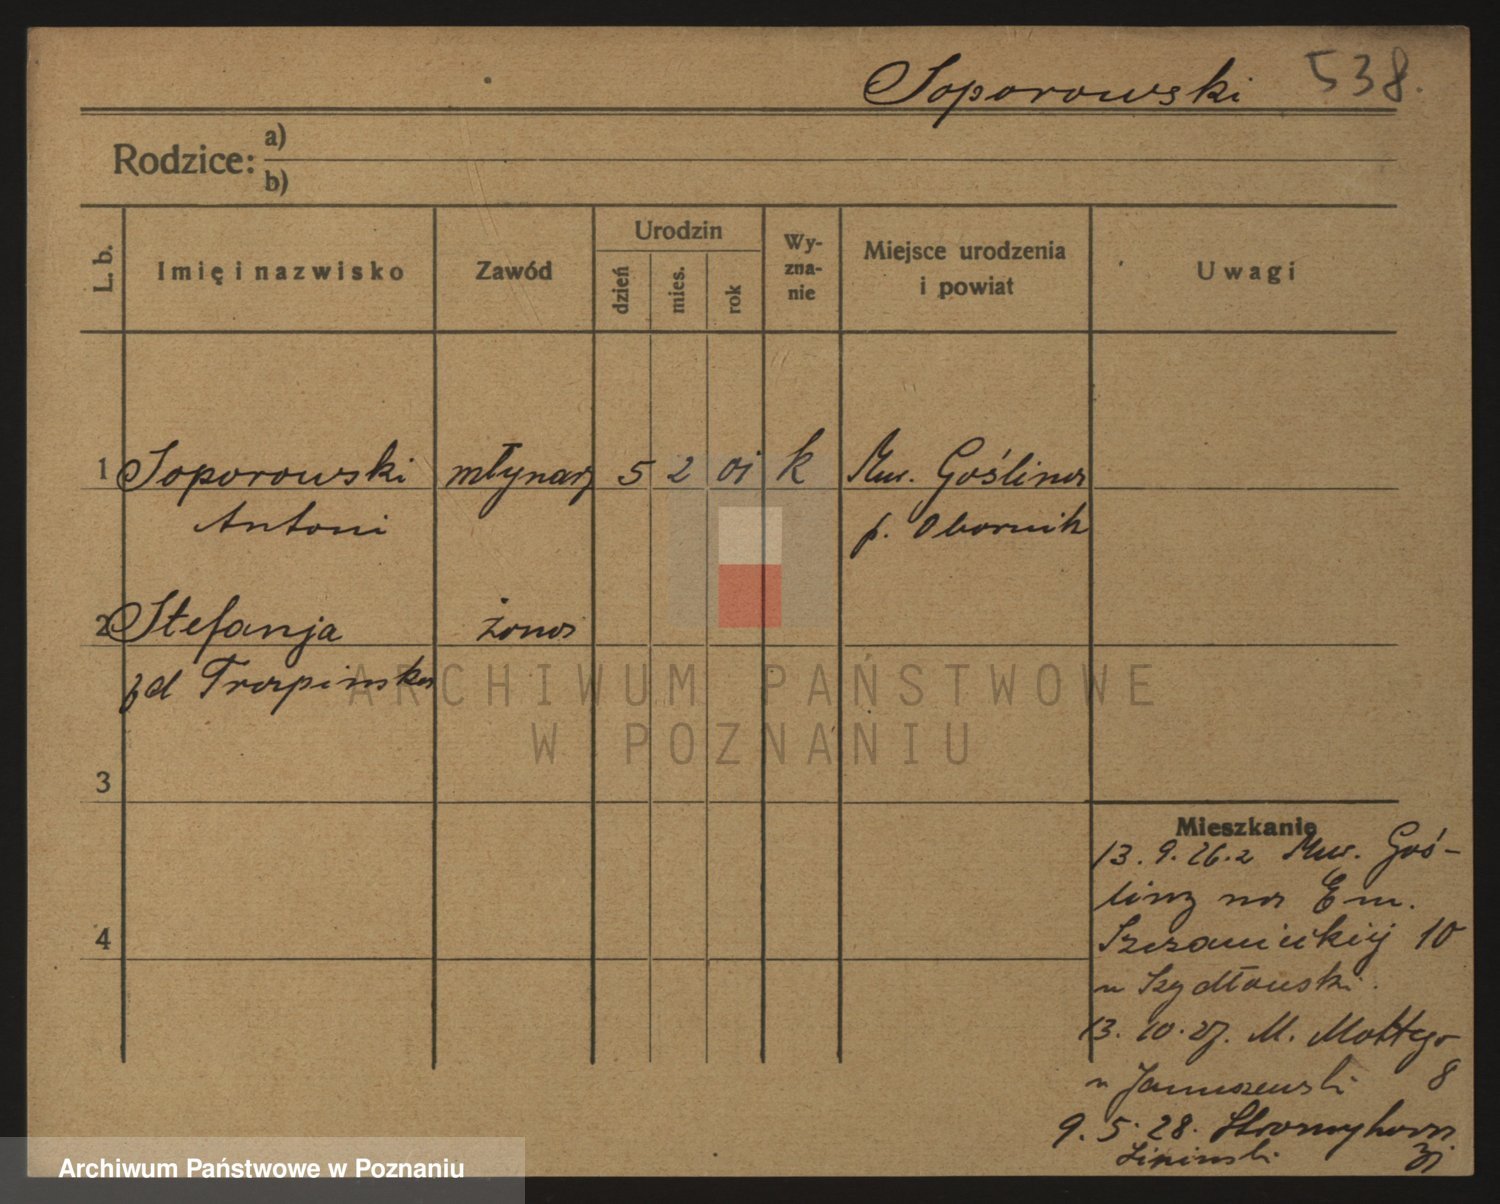 Soporowski 538.
Rodzice: a)
b)
L. b. Imię i nazwisko Zawód Urodzin dzień mies. rok Wy-zna-nie Miejsce urodzenia i powiat Uwagi
1 Soporowski młynarz 5 2 01 k Mur. Goślina
Antoni p. Obornik
2 Stefanja żona
zd
3
4
Mieszkanie
13. 9. 26. z Mur. Goś-
liny na Em.
Sczanieckiej 10
u Szydłowski.
13. 10. 27. M. Mottego
u Januszewski 8
9. 5. 28.
Lipinski
ARCHIWUM PAŃSTWOWE
W POZNANIU
Archiwum Państwowe w Poznaniu